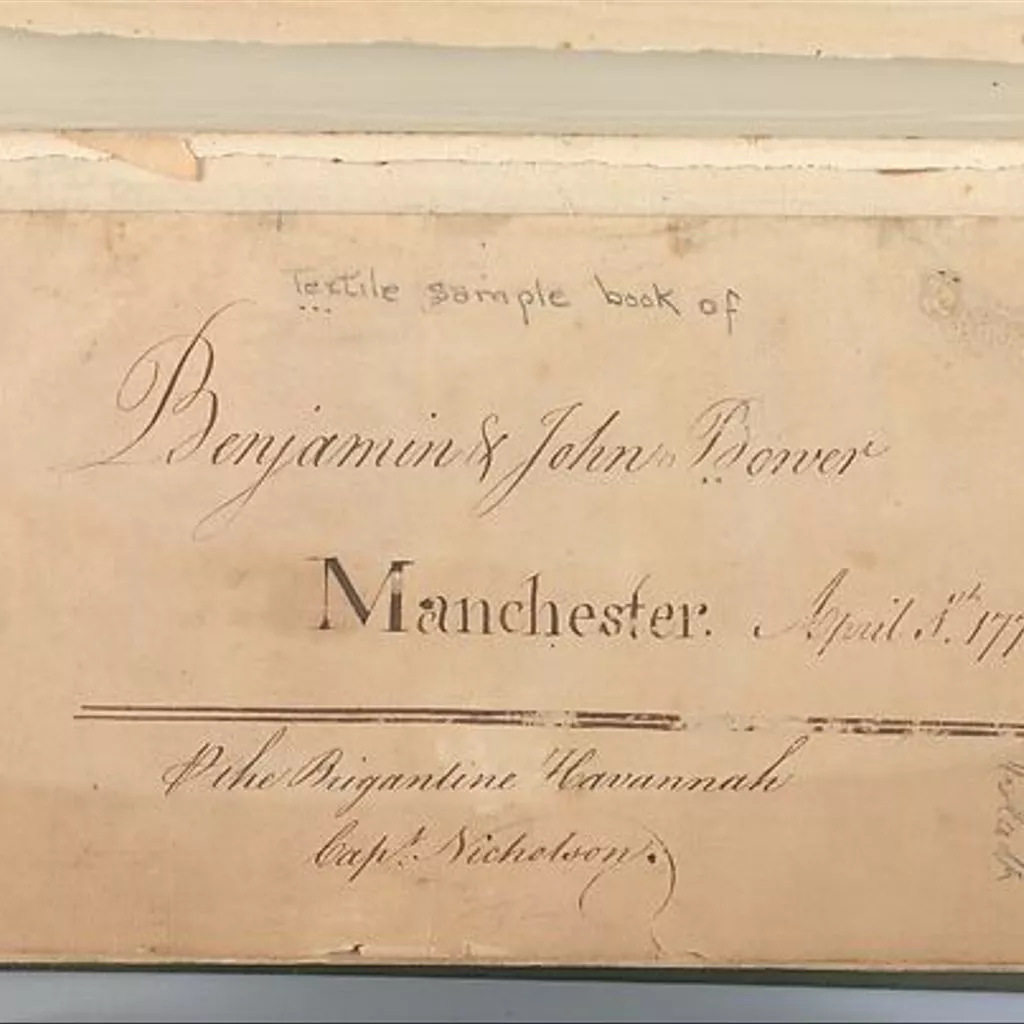 Textile sample book of
Benjamin & John Bower
Manchester. April 1st. 177
⅌ the Brigantine Havannah
Capt. Nicholson.